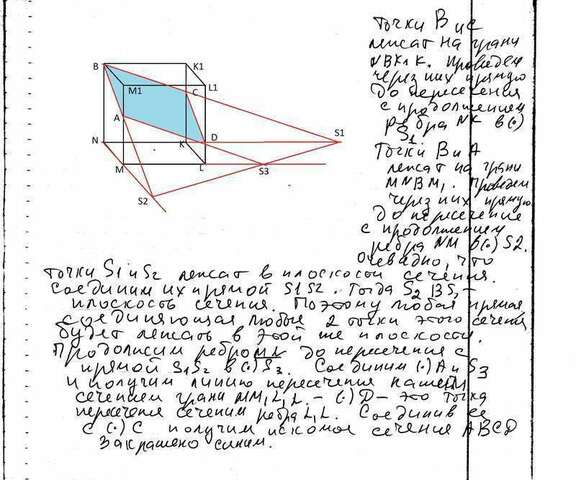 B
K1
M1
L1
C
A
N
K
D
S1
M
L
S3
S2
Точки В и С
лежат на грани
NBK1K. Проведем
через них прямую
до пересечения
с продолжением
ребра NK в (·)
S1
Точки В и А
лежат на грани
MNBM1. Проведем
через них прямую
До пересечение
с продолжением
ребра NM в (·) S2.
Очевидно, что
точки S1 и S2 лежат в плоскости сечения.
Соединим их прямой S1S2. Тогда S2BS1 –
плоскость сечения. Поэтому любая прямая
соединяющая любые 2 точки этого сечения
будет лежать в этой же плоскости.
Продолжим ребро до пересечения с
прямой S1S2 в (·) S3. Соединим (·) А и S3
и получим линию пересечения нашего
сечением грани MM1L1L. – (·) D – это точка
пересечение сечением ребра L1L. Соединив ее
с (·) С получим искомое сечение ABCD
Закрашено синим.